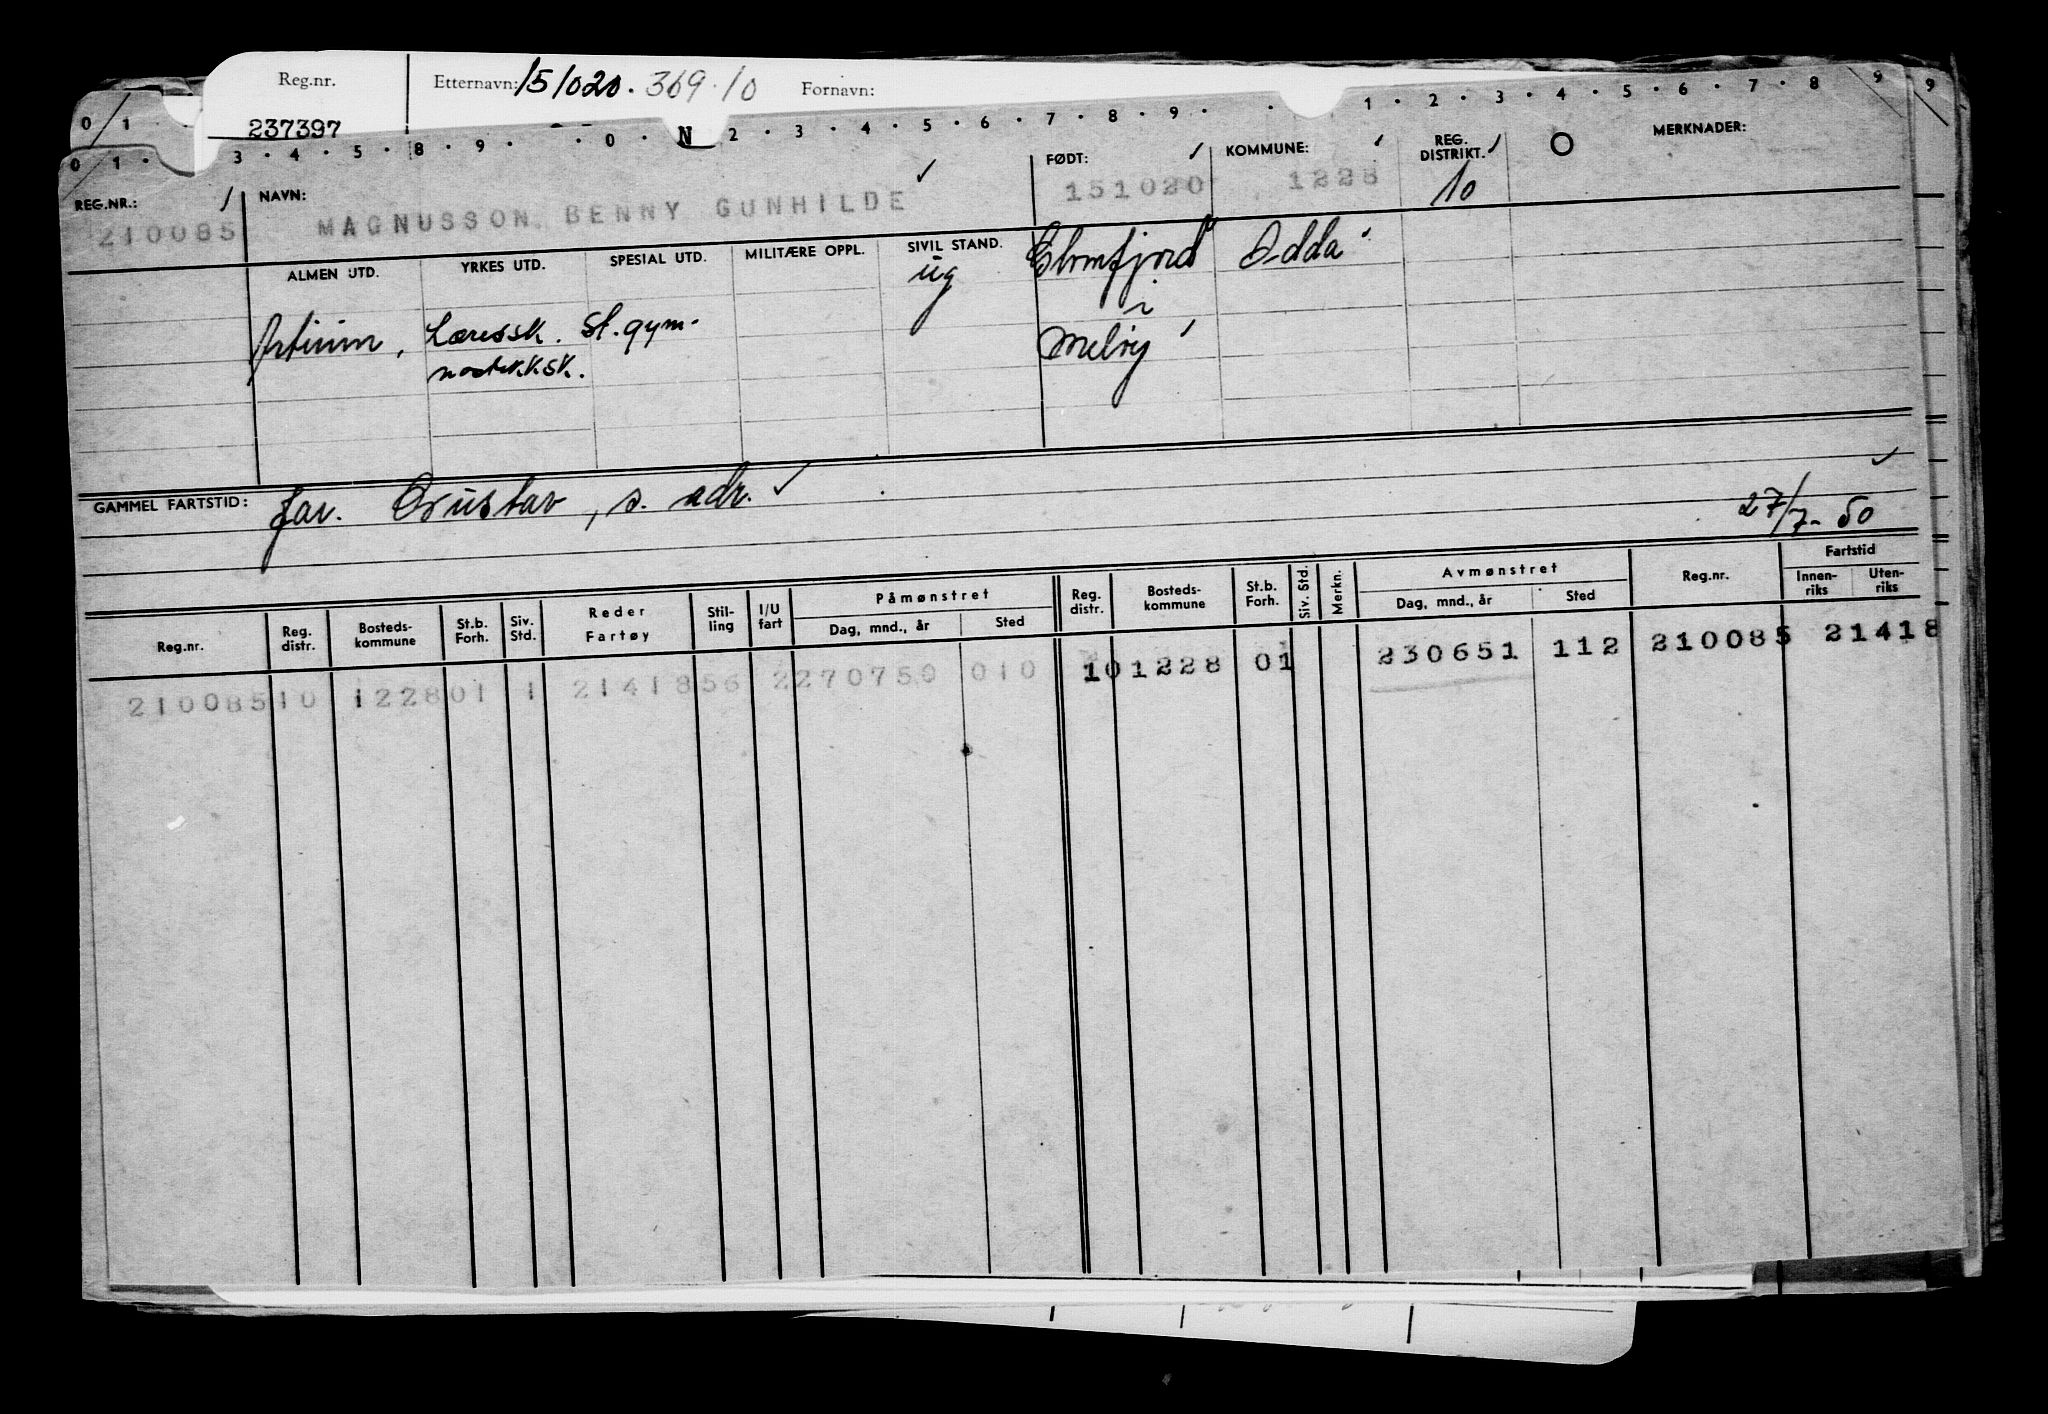 Reg.nr. Etternavn: 151020. 369.10 Fornavn:
237397
0 1 · 1 · 2 · 3 · 4 · 5 · 6 · 7 · 8 9 9
0 1 · 3 · 4 · 5 · 8 · 9 · · 0 · N 2 · 3 · 4 · 5 · 6 · 7 · 8 · 9 ·
REG.NR.: NAVN: FØDT: KOMMUNE: REG. DISTRIKT. O MERKNADER:
210085 MAGNUSSON, BENNY GUNHILDE 151020 1228 10
ALMEN UTD. YRKES UTD. SPESIAL UTD. MILITÆRE OPPL. SIVIL STAND.
ug Odda
i
Artium, Læressk. St. gym-
nastikksk.
GAMMEL FARTSTID: far. Gustav, s. adr. ✓
27/7-50
Reg.nr. Reg. distr. Bosteds-kommune St.b. Forh. Siv. Std. Reder Fartøy Stil-ling I/U fart Påmønstret Dag, mnd., år Sted Reg. distr. Bosteds-kommune St.b. Forh. Siv. Std. Merkn. Avmønstret Dag, mnd., år Sted Reg.nr. Fartstid Innen-riks Uten-riks
210085 10 1228 01 1 21418 56 2 270750 010 10 1228 01 230651 112 210085 21418